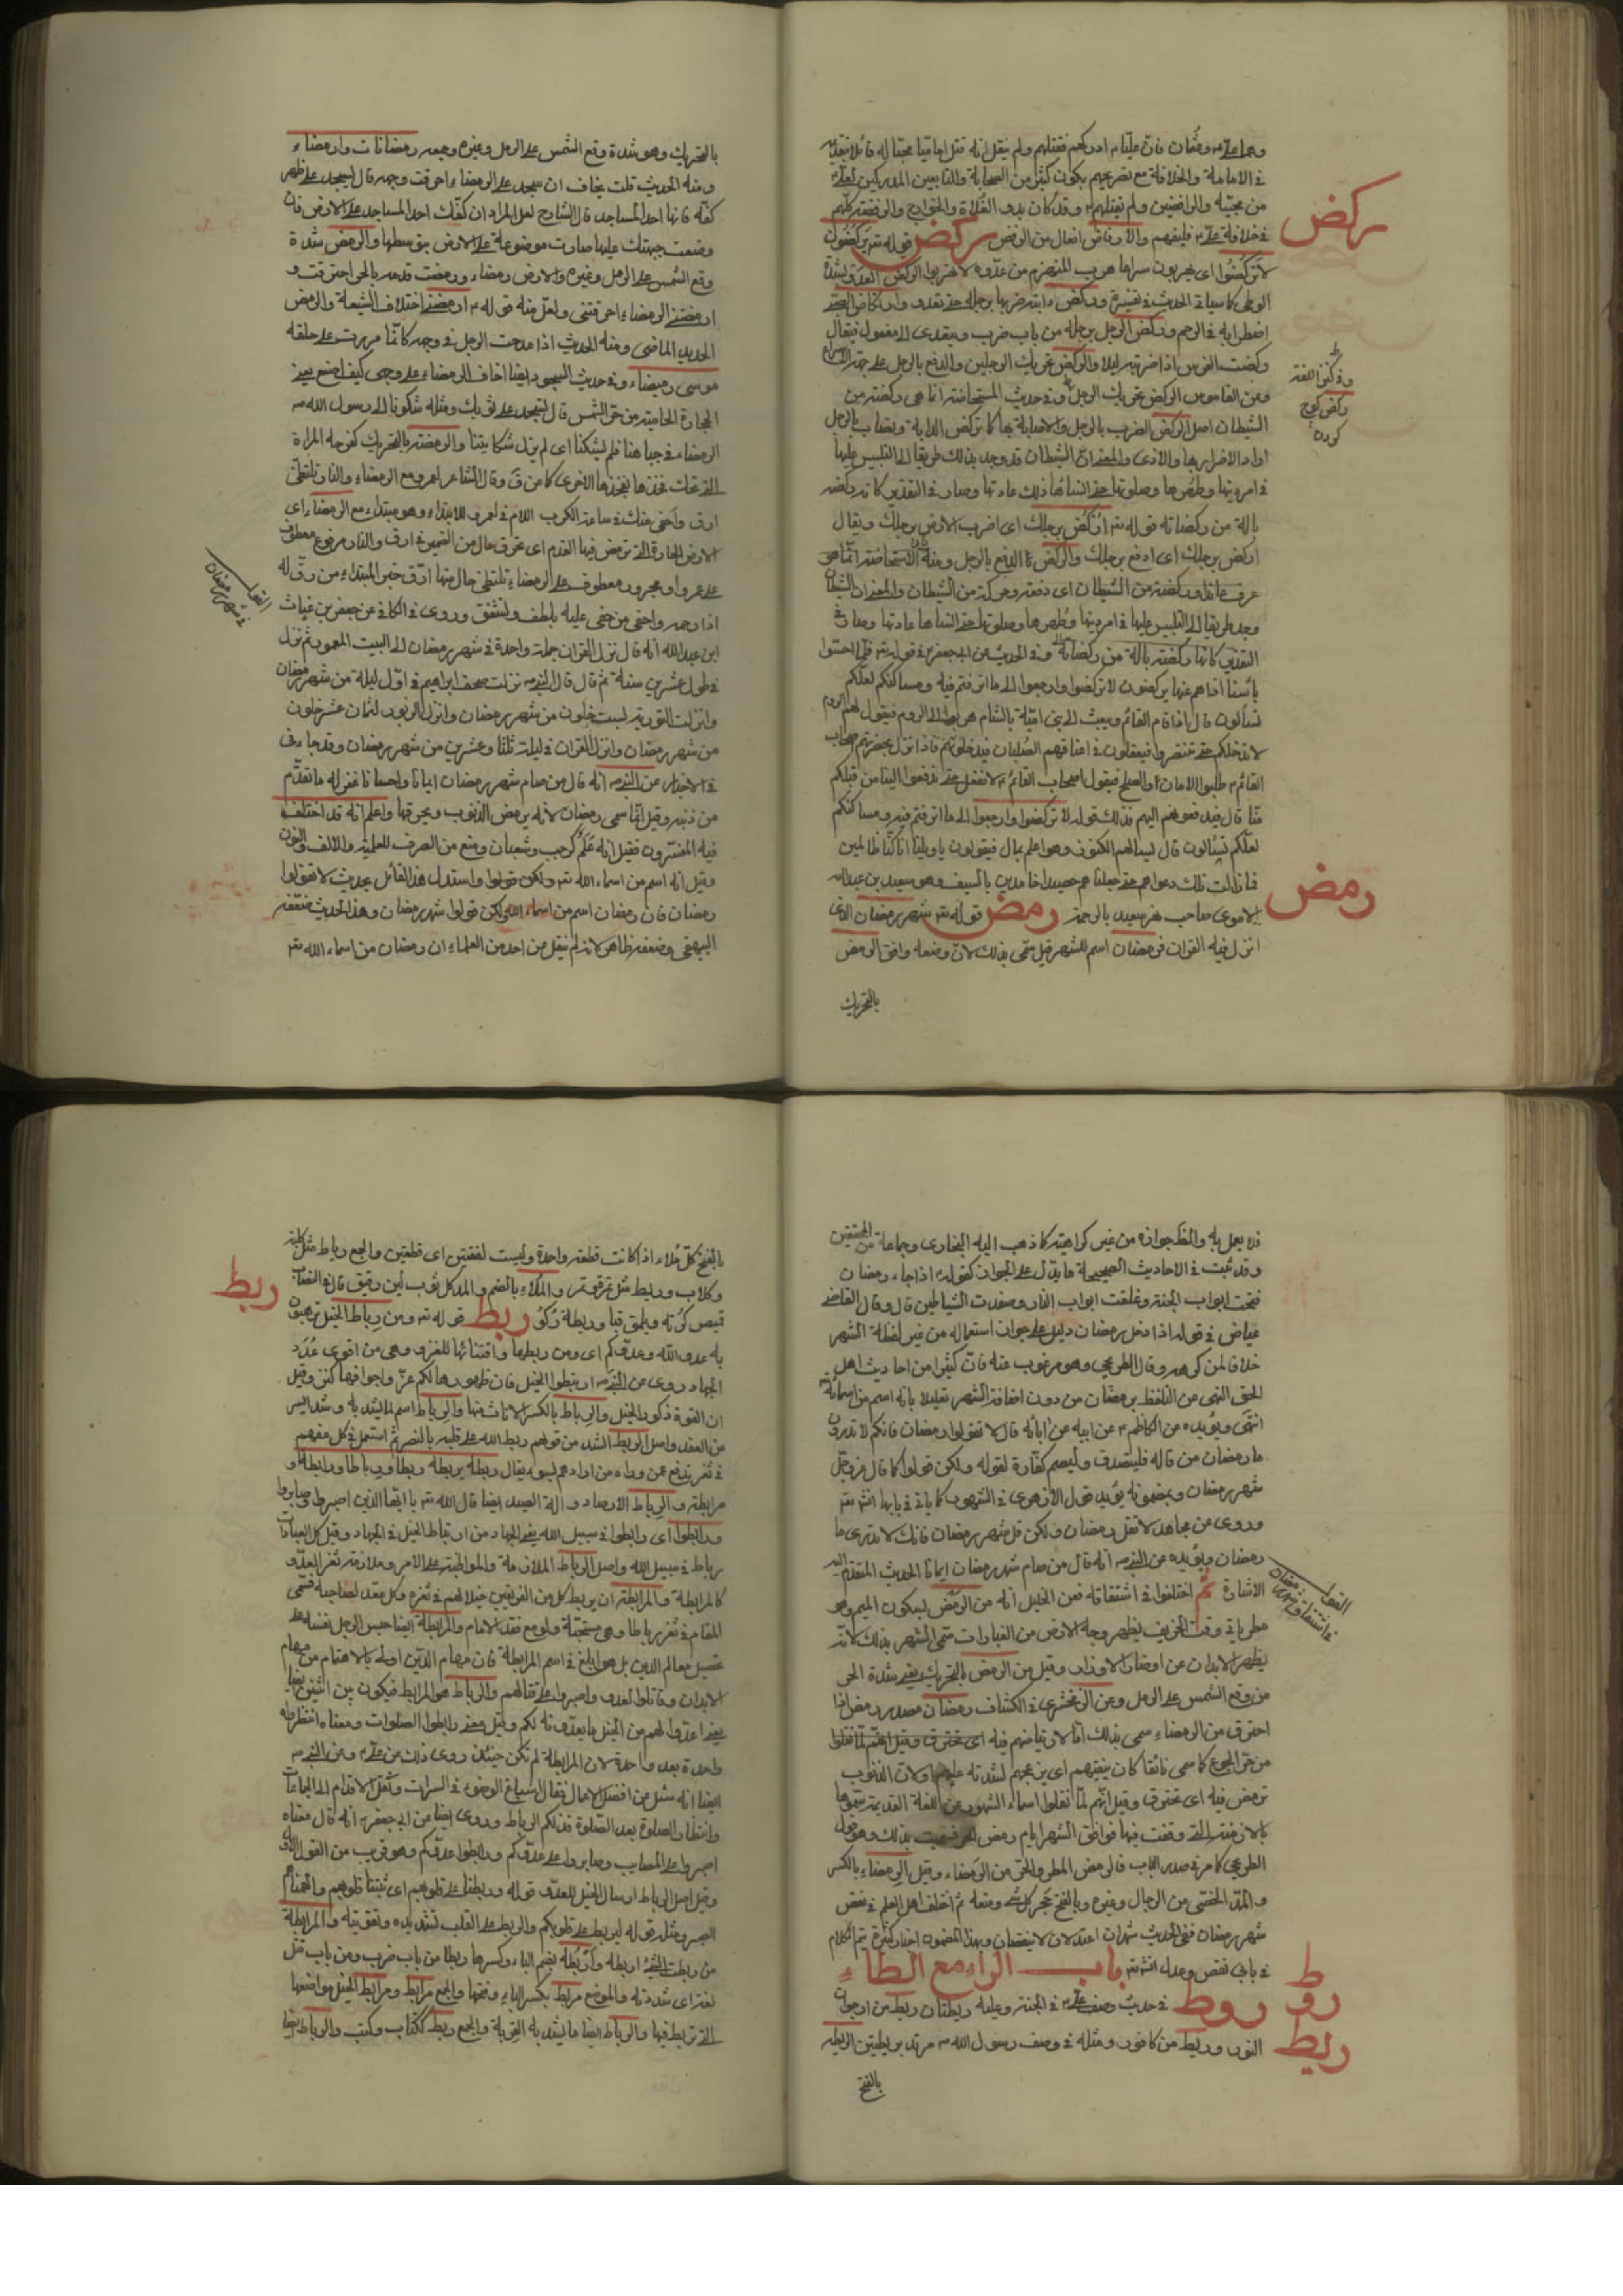 في الامامة والخلافة مع تصريحهم بكون كثير من الصحابة والتابعين المدركين لعلي
من محبيه والرافضين ولم يقتلهم وقد كان بدو الغلاة والخوارج والرفضة كلهم
في خلافة علي فليفهم والارفاض افعال من الرفض ركض قوله تع يركضون
ركض
لا تركضوا اى يهربون سراعا هرب المنهزم من عدوه لا تهربوا الركض العدو بشدة
الوطى كما سياتى الحديث في تفسيره وركض دابته ضربها برجله حتى تعدو وارتكاض الصبى
اضطرابه في الرحم وركض الرجل برجله من باب ضرب ويتعدى الى مفعول فيقال
ركضت الفرس اذا ضربته ليلا والركض تحريك الرجلين والدفع بالرجل على جهة الاسراع
وفي كنز اللغة
ركض كوچ
كردن
وعن القاموس الركض تحريك الرجل وفي حديث المستحاضة انما هى ركضة من
الشيطان اصل الركض الضرب بالرجل والاصابة بها كما تركض الدابة وتصاب بالرجل
اراد الاضرار بها والاذى والمعنى ان الشيطان قد وجد بذلك طريقا الى التلبيس عليها
في امر دينها وطهرها وصلوتها حتى انساها ذلك عادتها وصار في التقدير كانه ركضة
بالة من ركضاته قوله تع اركض برجلك اى اضرب الارض برجلك ويقال
اركض برجلك اى ادفع برجلك والركض الدفع بالرجل ومنه الاستحاضة انما هى
عرق عاند وركضة من الشيطان اى دفعة وحركة من الشيطان والمعنى ان الشيطان
وجد طريقا الى التلبيس عليها في امر دينها وطهرها وصلوتها حتى انساها عادتها وصار في
التقدير كانها ركضة بالة من ركضاته وفي الحديث عن ابى جعفر في قوله تع فلما احسوا
بأسنا اذا هم منها يركضون لا تركضوا وارجعوا الى ما اترفتم فيه ومساكنكم لعلكم
تسألون قال اذا قام القائم وبعث الى بنى امية بالشام هربوا الى الروم فيقول لهم الروم
لا ندخلكم حتى تتنصروا فيعلقون في اعناقهم الصلبان فيدخلونهم فاذا نزل بحضرتهم اصحاب
القائم طلبوا الامان والصلح فيقول اصحاب القائم لا نفعل حتى تدفعوا الينا من قبلكم
منا قال فيدفعونهم اليهم فذلك قوله لا تركضوا وارجعوا الى ما اترفتم فيه ومساكنكم
لعلكم تسئلون قال يسالهم الكنوز وهو اعلم بها قال فيقولون يا ويلنا انا كنا ظالمين
فما زالت تلك دعواهم حتى جعلناهم حصيدا خامدين بالسيف وهو سعيد بن عبد الملك
الاموى صاحب نهر سعيد بالرحبة رمض قوله تع شهر رمضان الذى
رمض
انزل فيه القران فرمضان اسم للشهر قيل سمى بذلك لان وضعه وافق الرمض
بالتحريك
بالتحريك وهو شدة وقع الشمس على الرمل وغيره وجمعه رمضانات وارمضاء
ومنه الحديث قلت يخاف ان سجد على الرمضاء احرقت وجهه قال يسجد على ظهر
كفه فانها احد المساجد قال الشارح لعل المراد ان كفك احد المساجد على الارض فان
وضعت جبهتك عليها صارت موضوعة على الارض بتوسطها والرمض شدة
وقع الشمس على الرمل وغيره والارض رمضاء ورمضت قدمه بالحر احترقت و
ارمضتنى الرمضاء احرقتنى ولعل منه قوله ارمضنى اختلاف الشيعة والرمض
الحديد الماضى ومنه الحديث اذا مدحت الرجل في وجهه كانما مررت على حلقه
موسى رميضا وفي حديث السجود ايضا اخاف الرمضاء على وجهى كيف اصنع يعنى
الحجارة الحامية من حر الشمس قال تسجد على ثوبك ومثله شكونا الى رسول الله
الرمضاء في جباهنا فلم يشكنا اى لم يزل شكايتنا والرمضة بالتحريك كفرحة المراة
التى تحك فخذها بفخذها الاخرى كما من ق وقال الشاعر لعمرو مع الرمضاء والنار تلتظى
ارق واحفى منك في ساعة الكرب اللام في لعمرو للابتداء وهو مبتداء مع الرمضاء اى
الارض الحارة التى ترمض فيها القدم اى تحرق حال من الضمير في ارق والنار مرفوع معطوف
على عمرو او مجرور معطوف على الرمضاء تلتظى حال منها ارق خبر المبتداء من رق له
اذا رحمه واحفى من حفى عليه بلطف واشفق وروى في الكافى عن حفص بن غياث
ابن عبد الله انه قال نزل القران جملة واحدة في شهر رمضان الى البيت المعمور ثم نزل
في طول عشرين سنة ثم قال قال النبى نزلت صحف ابراهيم في اول ليلة من شهر رمضان
وانزلت التورية لست خلون من شهر رمضان وانزل الزبور لثمان عشر خلون
من شهر رمضان وانزل القران في ليلة ثلثا وعشرين من شهر رمضان وقد جاء في
في الاخبار عن النبى انه قال من صام شهر رمضان ايمانا واحتسابا غفر له ما تقدم
من ذنبه وقيل انما سمى رمضان لانه يرمض الذنوب ويحرقها واعلم انه قد اختلف
فيه المفسرون فقيل انه علم كرجب وشعبان ومنع من الصرف للعلمية والالف والنون
وقيل انه اسم من اسماء الله تع ولكن قولوا واستدل هذا القائل بحديث لا تقولوا
رمضان فان رمضان اسم من اسماء الله ولكن قولوا شهر رمضان وهذا الحديث ضعفه
البيهقى وضعفه ظاهر لانه لم ينقل عن احد من العلماء ان رمضان من اسماء الله تع
فلا يعمل به والظ جوازه من غير كراهة كما ذهب اليه البخارى وجماعة من المحققين
وقد ثبت في الاحاديث الصحيحة ما يدل على الجواز كقوله اذا جاء رمضان
فتحت ابواب الجنة وغلقت ابواب النار وصفدت الشياطين قال وقال القاضى
عياض في قوله اذا دخل رمضان دليل على جواز استعماله من غير لفظة الشهر
خلافا لمن كرهه وقال الطريحى وهو مرغوب عنه فان كثيرا من احاديث اهل
الحق النهى عن التلفظ برمضان من دون اضافة الشهر تعليلا بانه اسم من اسمائه تع
انتهى ويؤيده عن الكاظم عن ابيه عن ابائه قال لا تقولوا رمضان فانكم لا تدرون
ما رمضان من قاله فليتصدق وليصم كفارة لقوله ولكن قولوا كما قال عز وجل
شهر رمضان وبمضمونه يؤيد قول الازهرى في الشهور كما ياتى في بابها انش تع
وروى عن مجاهد لا تقل رمضان ولكن قل شهر رمضان فانك لا تدرى ما
رمضان ويؤيده عن النبى انه قال من صام شهر رمضان ايمانا الحديث المتقدم اليه
الاشارة ثم اختلفوا في اشتقاقه فعن الخليل انه من الرمض بسكون الميم وهو
مطر ياتى وقت الخريف يطهر وجه الارض من الغبار سمى الشهر بذلك لانه
يطهر الابدان عن اوضار الاوزار وقيل من الرمض بالتحريك بمعنى شدة الحر
من وقع الشمس على الرمل وعن الزمخشرى في الكشاف رمضان مصدر رمض اذا
احترق من الرمضاء سمى بذلك اما لارتماضهم فيه
من حر الجوع كما سمى ناتقا كان ينتقهم اى يزعجهم لشدته عليهم ولان الذنوب
ترمض فيه اى تحترق وقيل انهم لما نقلوا اسماء الشهور عن اللغة القديمة سموها
بالازمنة التى وقعت فيها فوافق الشهر ايام رمض الحر فسميت بذلك وهو قول
الطريحى كما مر في صدر الباب فالرمض المطر والحر من الرمضاء وقيل الرمضاء بالكسر
شهر رمضان ففى الحديث شهران اعتدلان لا ينقصان وبهذا المضمون اخبار كثيرة يتم الكلام
في بابى نقص وعدل انش تع باب الراء مع الطاء
روط في حديث وصف على في الجنة وعليه ريطتان ريطة من ارجوان
ريط
النور وريطة من كافور ومثله في وصف رسول الله مرتد بريطتين الريطة
بالفتح
بالفتح كل ملاءة اذا كانت قطعة واحدة وليست لفقتين اى قطعتين والجمع رياط مثل كلبة
وكلاب وريط مثل تمرة وتمر والملاءة بالضم والمد كل ثوب لين رقيق قال في النصاب
ربط قوله تع ومن رباط الخيل ترهبون
ربط
به عدو الله وعدوكم اى ومن ربطها واقتنائها للغزو وهى من اقوى عدد
الجهاد روى عن النبى ارتبطوا الخيل فان ظهورها لكم عز واجوافها كنز وقيل
ان القوة ذكور الخيل والرباط بالكسر الاناث منها والرباط اسم لما يشد به وشد اليسر
من العقد واصل الربط الشد من قولهم ربط الله على قلبه بالصبر ثم استعمل في كل مقيم
في ثغر يدفع عمن وراه من ارادهم بسوء يقال ربطه يربطه ربطا ورباطا ورابطه و
مرابطة والرباط الارصاد والة الصيد ايضا قال الله تع يا ايها الذين اصبروا وصابروا
ورابطوا اى رابطوا في سبيل الله يعنى الجهاد من ارتباط الخيل في الجهاد وقيل كل العبادات
رباط في سبيل الله واصل الرباط الملازمة والمواظبة على الامر وملازمة ثغر العدو
كالمرابطة والمرابطة ان يربط كل من الفريقين خيلا لهم في ثغره وكل معد لصاحبه فسمى
المقام في ثغر رباطا وهى مستحبة ولو مع فقد الامام والمرابطة ايضا حبس الرجل نفسه على
تحصيل معالم الدين بل هو ابلغ في اسم المرابطة فان مهام الدين اولى بالاهتمام من مهام
الابدان وقاتلوا لعدو واصبروا على قتالهم والرباط هو المرابط فيكون بين اثنين ايضا
يعنى اعدوا لهم من الخيل ما يعدونه لكم وقيل معنى رابطوا الصلوات ومعناه انتظروها
واحدة بعد واحدة لان المرابطة لم تكن حينئذ روى ذلك عن على وعن النبى
ايضا انه سئل عن افضل الاعمال فقال اسباغ الوضوء في السبرات ونقل الاقدام الى الجماعات
وانتظار الصلوة بعد الصلوة فذلكم الرباط وروى ايضا عن ابى جعفر انه قال معناه
اصبروا على المصايب وصابروا على عدوكم ورابطوا عدوكم وهو قريب من القول الاول
وقيل اصل الرباط ارسال الخيل للعدو قوله وربطنا على قلوبهم اى ثبتنا قلوبهم والهمناهم
الصبر ومثله قوله ليربط على قلوبكم والربط على القلب تشديده وتقويته والمرابطة
من ربطت الشئ اربطه واربطه بضم الباء وكسرها ربطا من باب ضرب ومن باب قتل
لغة اى شددته والموضع مربط بكسر الباء وفتحها والجمع مرابط ومرابط الخيل مواضعها
التى تربط فيها والرباط ايضا ما يشد به القربة والجمع ربط ككتاب وكتب والرباط ايضا